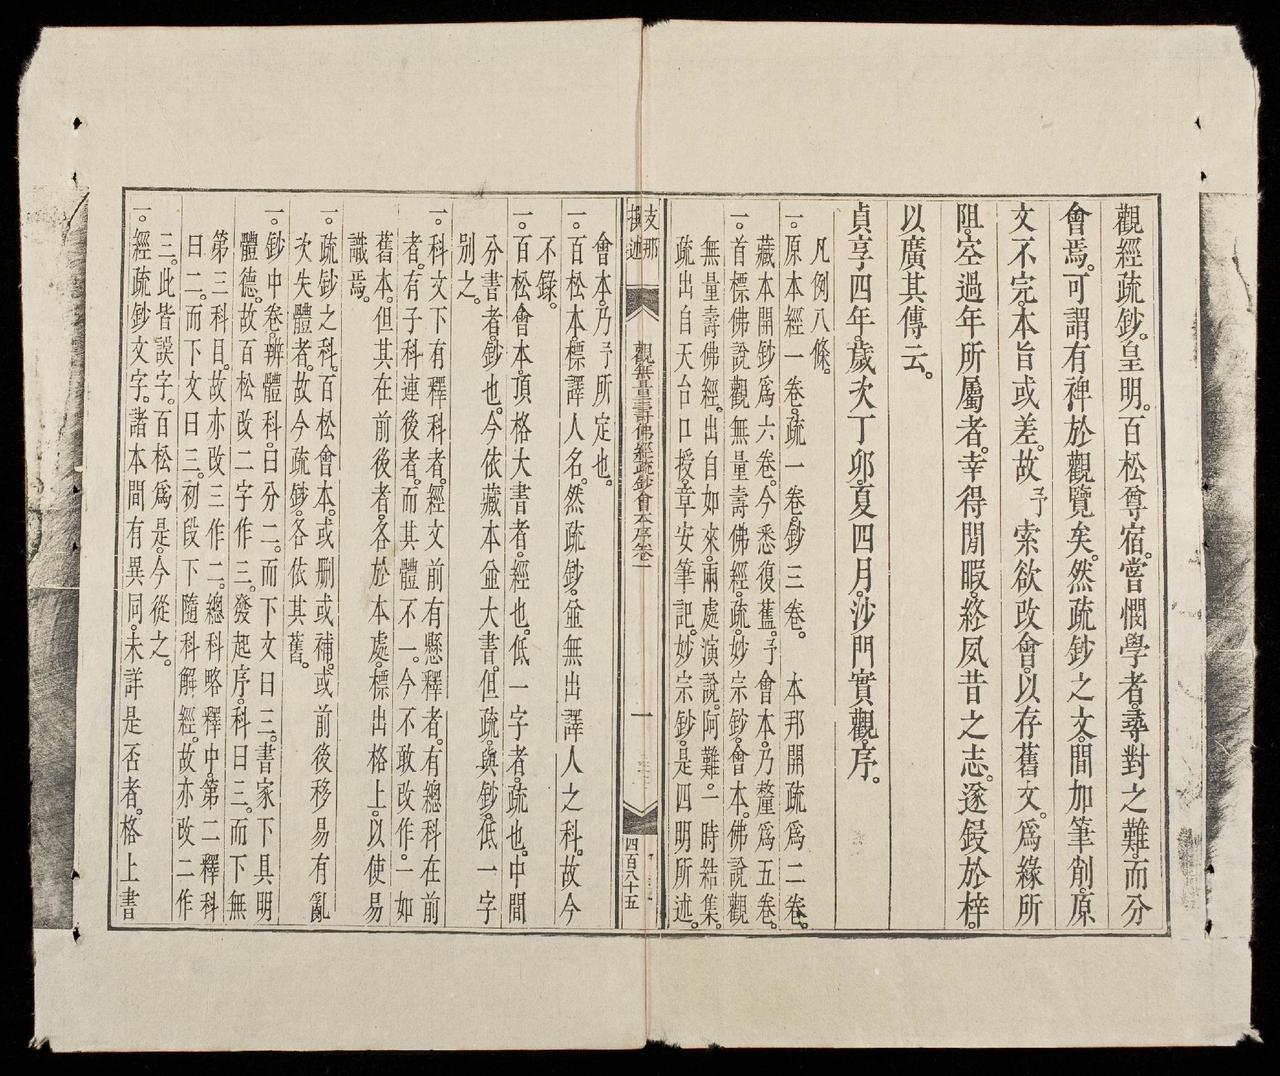 觀經疏鈔。皇明。百松尊宿。嘗憫學者。尋對之難。而分
會焉。可謂有裨於觀覽矣。然疏鈔之文。間加筆削。原
文不完。本旨或差。故予索欲改會。以存舊文。爲緣所
阻。空過年所屬者。幸得閒暇。終夙昔之志。遂鋟於梓。
以廣其傳云。
貞享四年。歲次丁卯。夏四月。沙門實觀。序。
凡例八條。
一。原本經一卷。疏一卷。鈔三卷。　本邦開疏爲二卷。
藏本開鈔爲六卷。今悉復舊。予會本。乃釐爲五卷。
一。首標佛說觀無量壽佛經。疏。妙宗鈔。會本。佛說觀
無量壽佛經。出自如來。兩處演說。阿難。一時結集。
疏出自天台口授。章安筆記。妙宗鈔。是四明所述。
支那
撰述
觀無量壽佛經疏鈔會本序卷一
一
四百八十五
會本。乃予所定也。
一。百松本。標譯人名。然疏鈔。並無出譯人之科。故今
不錄。
一。百松會本。頂格大書者。經也。低一字者。疏也。中間
分書者。鈔也。今依藏本並大書。但疏。與鈔。低一字
別之。
一。科文下有釋科者。經文前有懸釋者。有總科在前
者。有子科連後者。而其體不一。今不敢改作。一如
舊本。但其在前後者。各於本處。標出格上。以使易
識焉。
一。疏鈔之科。百松會本。或刪或補。或前後移易有亂
次失體者。故今疏鈔。各依其舊。
一。鈔中卷。辨體科。曰分二。而下文曰三。書家下具明
體德。故百松改二字作三。發起序。科曰三。而下無
第三科目。故亦改三作二。總科略釋中。第二釋科
曰二。而下文曰三。初段下隨科解經。故亦改二作
三。此皆誤字。百松爲是。今從之。
一。經疏鈔文字。諸本間有異同。未詳是否者。格上書